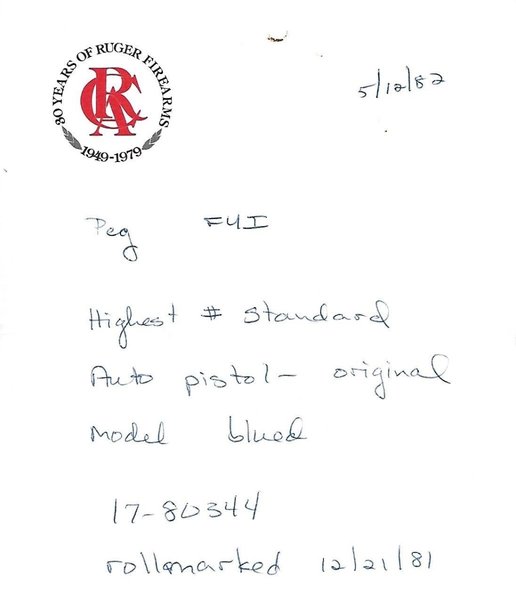 30 YEARS OF RUGER FIREARMS
RCA
1949-1979
5/12/82
Peg FYI
Highest # standard
Auto pistol- original
model blued
17-80344
rollmarked 12/21/81